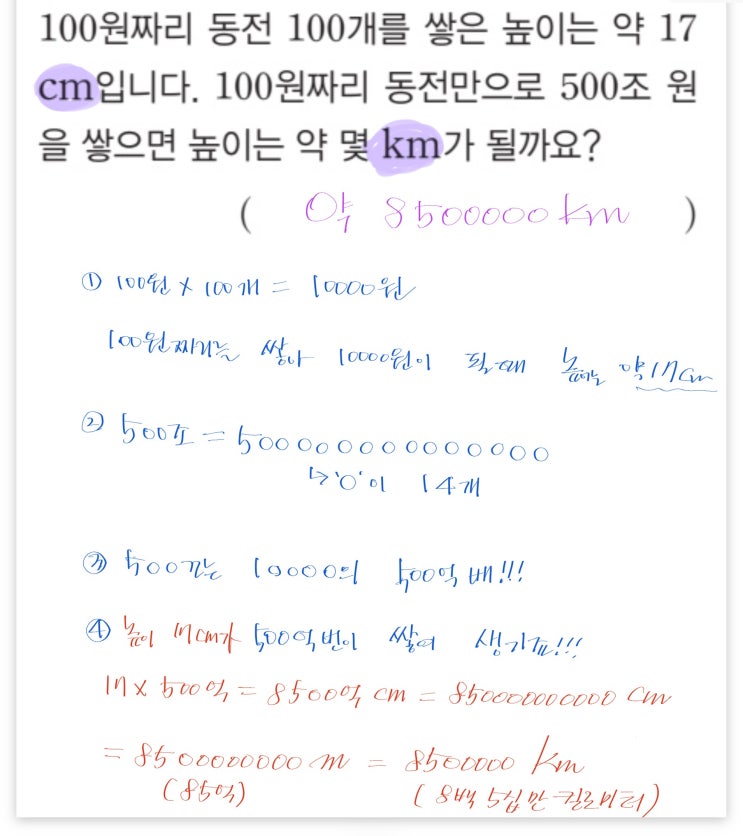 100원짜리 동전 100개를 쌓은 높이는 약 17
cm입니다. 100원짜리 동전만으로 500조 원
을 쌓으면 높이는 약 몇 km가 될까요?
( 약 8500000 km )
① 100원 × 100개 = 10000원
100원짜리는 쌓아 10000원이 될때 높이는 약 17cm
② 500조 = 500000000000000
↳ '0'이 14개
③ 500조는 10000의 500억 배!!!
④ 높이 17cm가 500억번이 쌓여 생기죠!!!
17 × 500억 = 8500억 cm = 850000000000 cm
= 8500000000 m = 8500000 km
(85억) (8백 5십만 킬로미터)